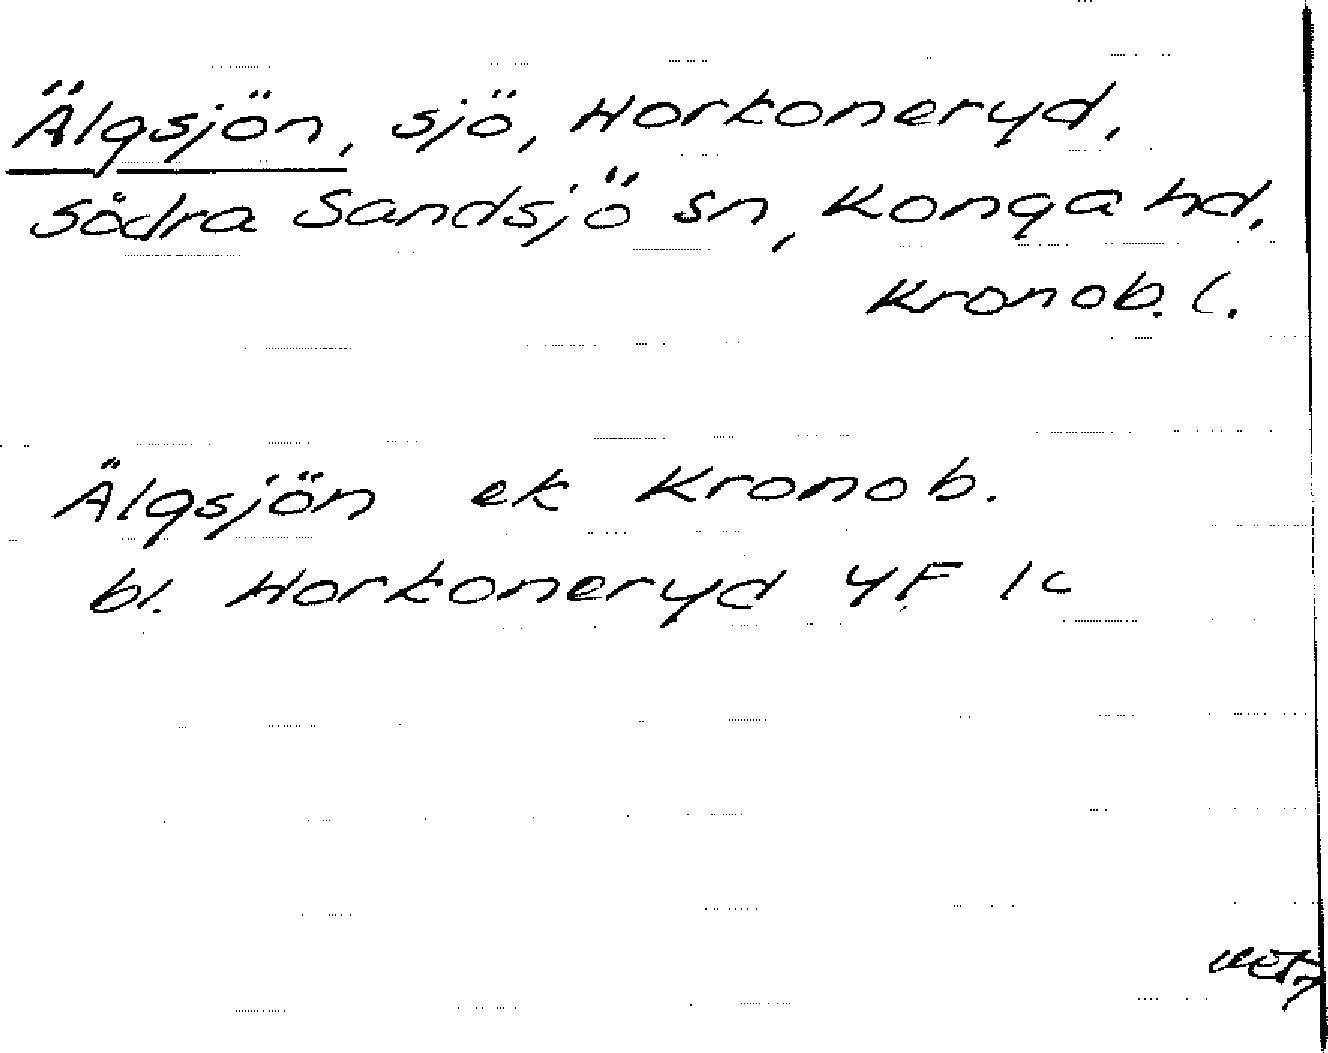 Älgsjön, sjö, Horkoneryd,
Södra Sandsjö sn, Konga hd.
Kronob. l.
Älgsjön ek Kronob.
bl. Horkoneryd 4F 1c